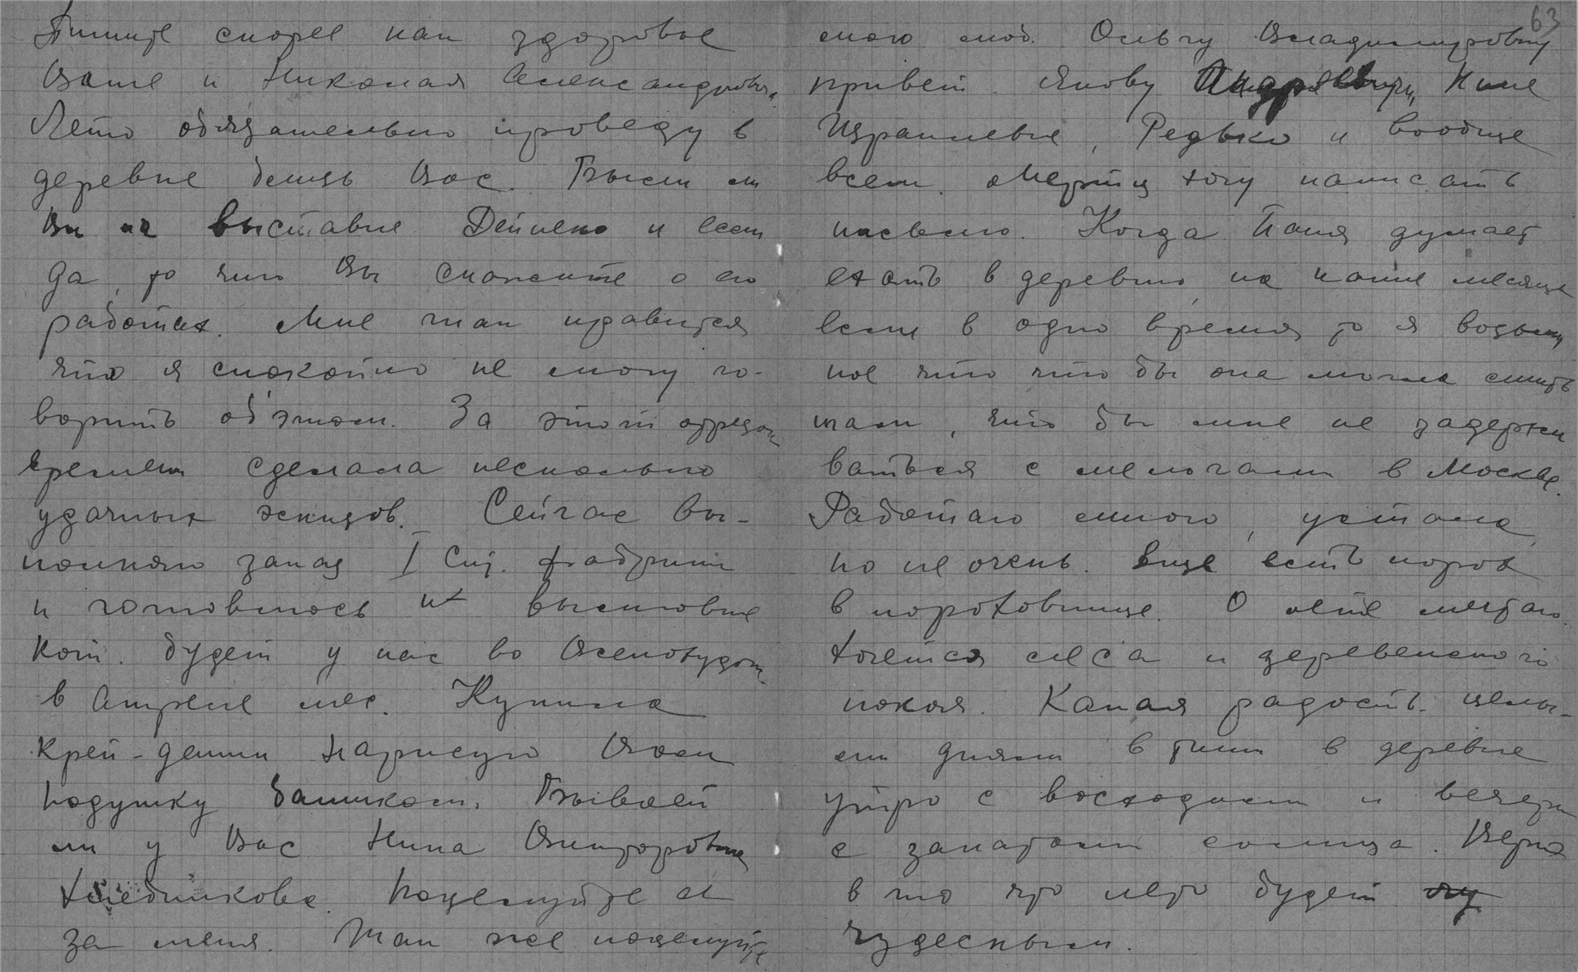 Пишите скорее как здоровье
Ваше и Николая Александровича.
Лето обязательно проведу в
деревне близь Вас. Были ли
Вы на выставке Дейнеко и если
да, то что Вы скажите о его
работах. Мне так нравится
что я спокойно не могу го-
ворить об'этом. За этот отрезок
времени сделала несколько
удачных эскизов. Сейчас вы-
полняю заказ I Сит. фабрики
и готовлюсь к выставке
кот. будет у нас во Всекохудож.
в Апреле мес. Купила
Крей-де-шин нарисую Вам
подушку батиком. Бывает
ли у Вас Нина Викторовна
Хлебникова. Поцелуйте её
за меня. Так же поцелуйте
63
мою люб. Ольгу Владимировну
привет Якову Андреевичу, Нине
Израилевне, Редько и вообще
всем. хочу написать
письмо. Когда Паня думает
ехать в деревню, на какие месяцы
если в одно время, то я возьму
её что что бы она могла спить
там, что бы мне не задержи
ваться с мелочами в Москве.
Работаю много, устала,
но не очень. Еще есть порох
в пороховнице. О лете мечтаю.
Хочется леса и деревенского
покоя. Какая радость целы-
ми днями в тиши в деревне
утро с восходом и вечера
с закатом солнца. Верю
в то что лето будет
чудесным.